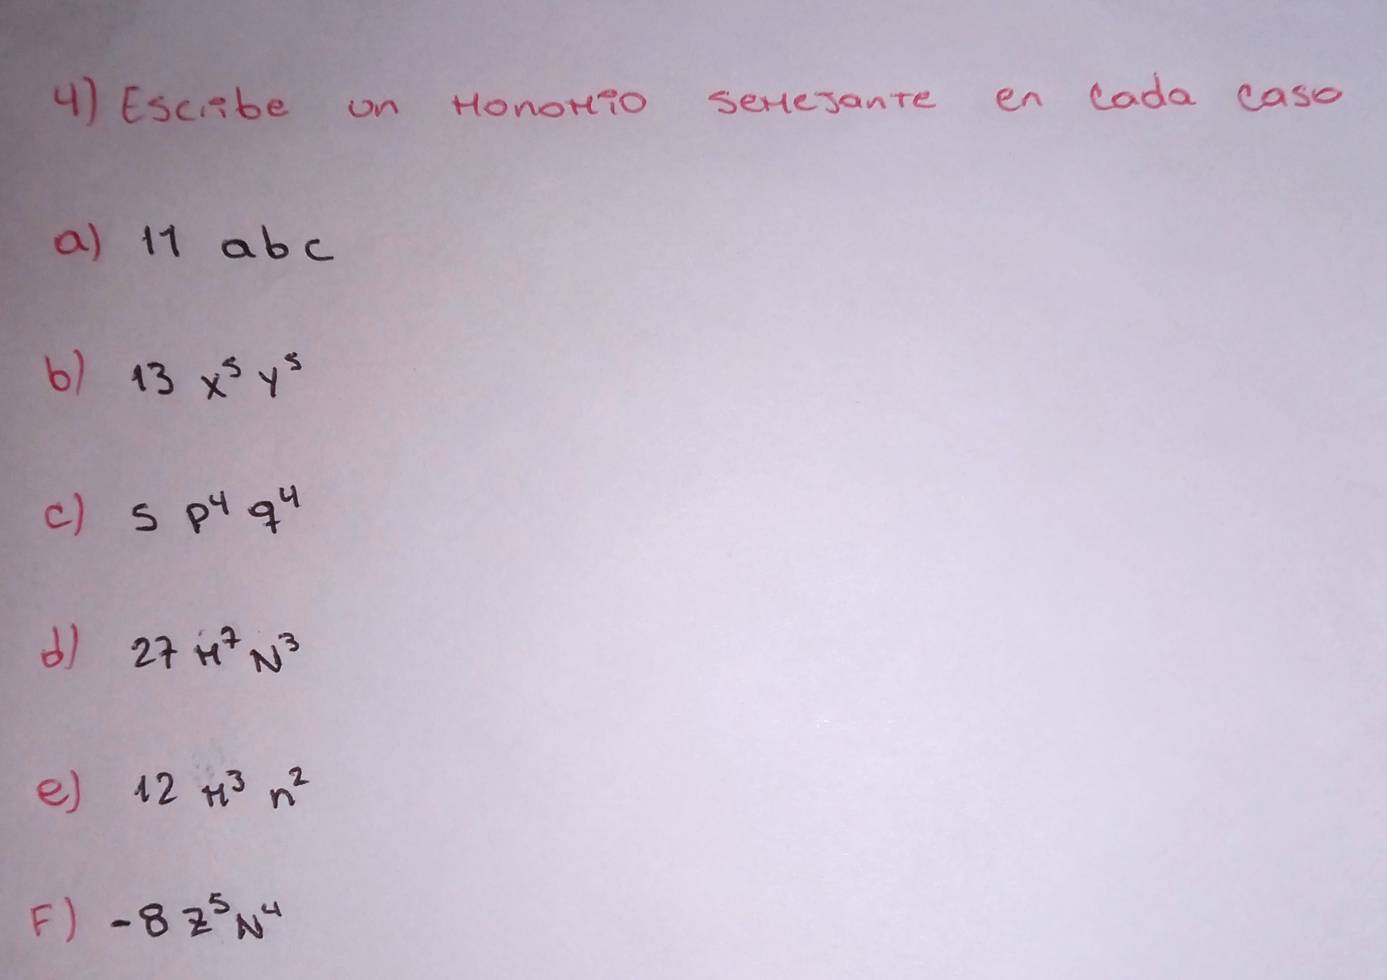 4) Escribe un Monomio semejante en cada caso
a) 11 abc
b) 13 x⁵ y⁵
c) 5 p⁴ q⁴
d) 27 M⁷ N³
e) 12 M³ n²
F) -8 z⁵ N⁴